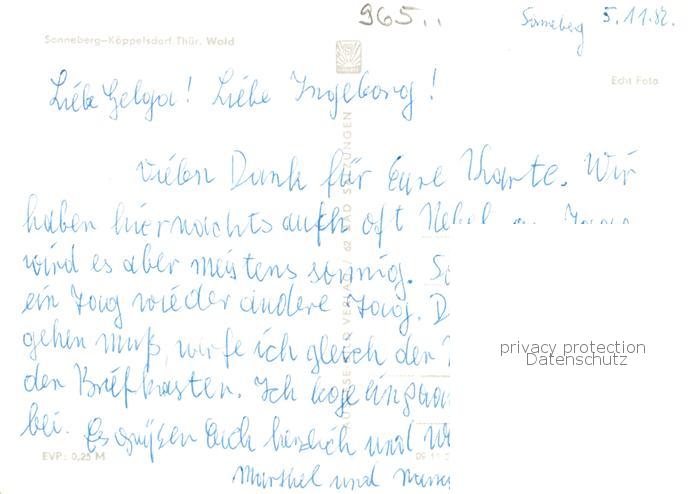 965..
Sonneberg 5.11.82.
Sonneberg-Köppelsdorf Thür. Wald
Echt Foto
Liebe Helga! Liebe Ingeborg!
Vielen Dank für Eure Karte. Wir
haben hier nachts auch oft Nebel
wird es aber meistens sonnig.
ein Tag wieder andere Tag.
gehen muß, werfe ich gleich den
den Briefkasten. Ich lege
bei. Es grüßen Euch herzlich und
und
EVP: 0,25 M
privacy protection
Datenschutz